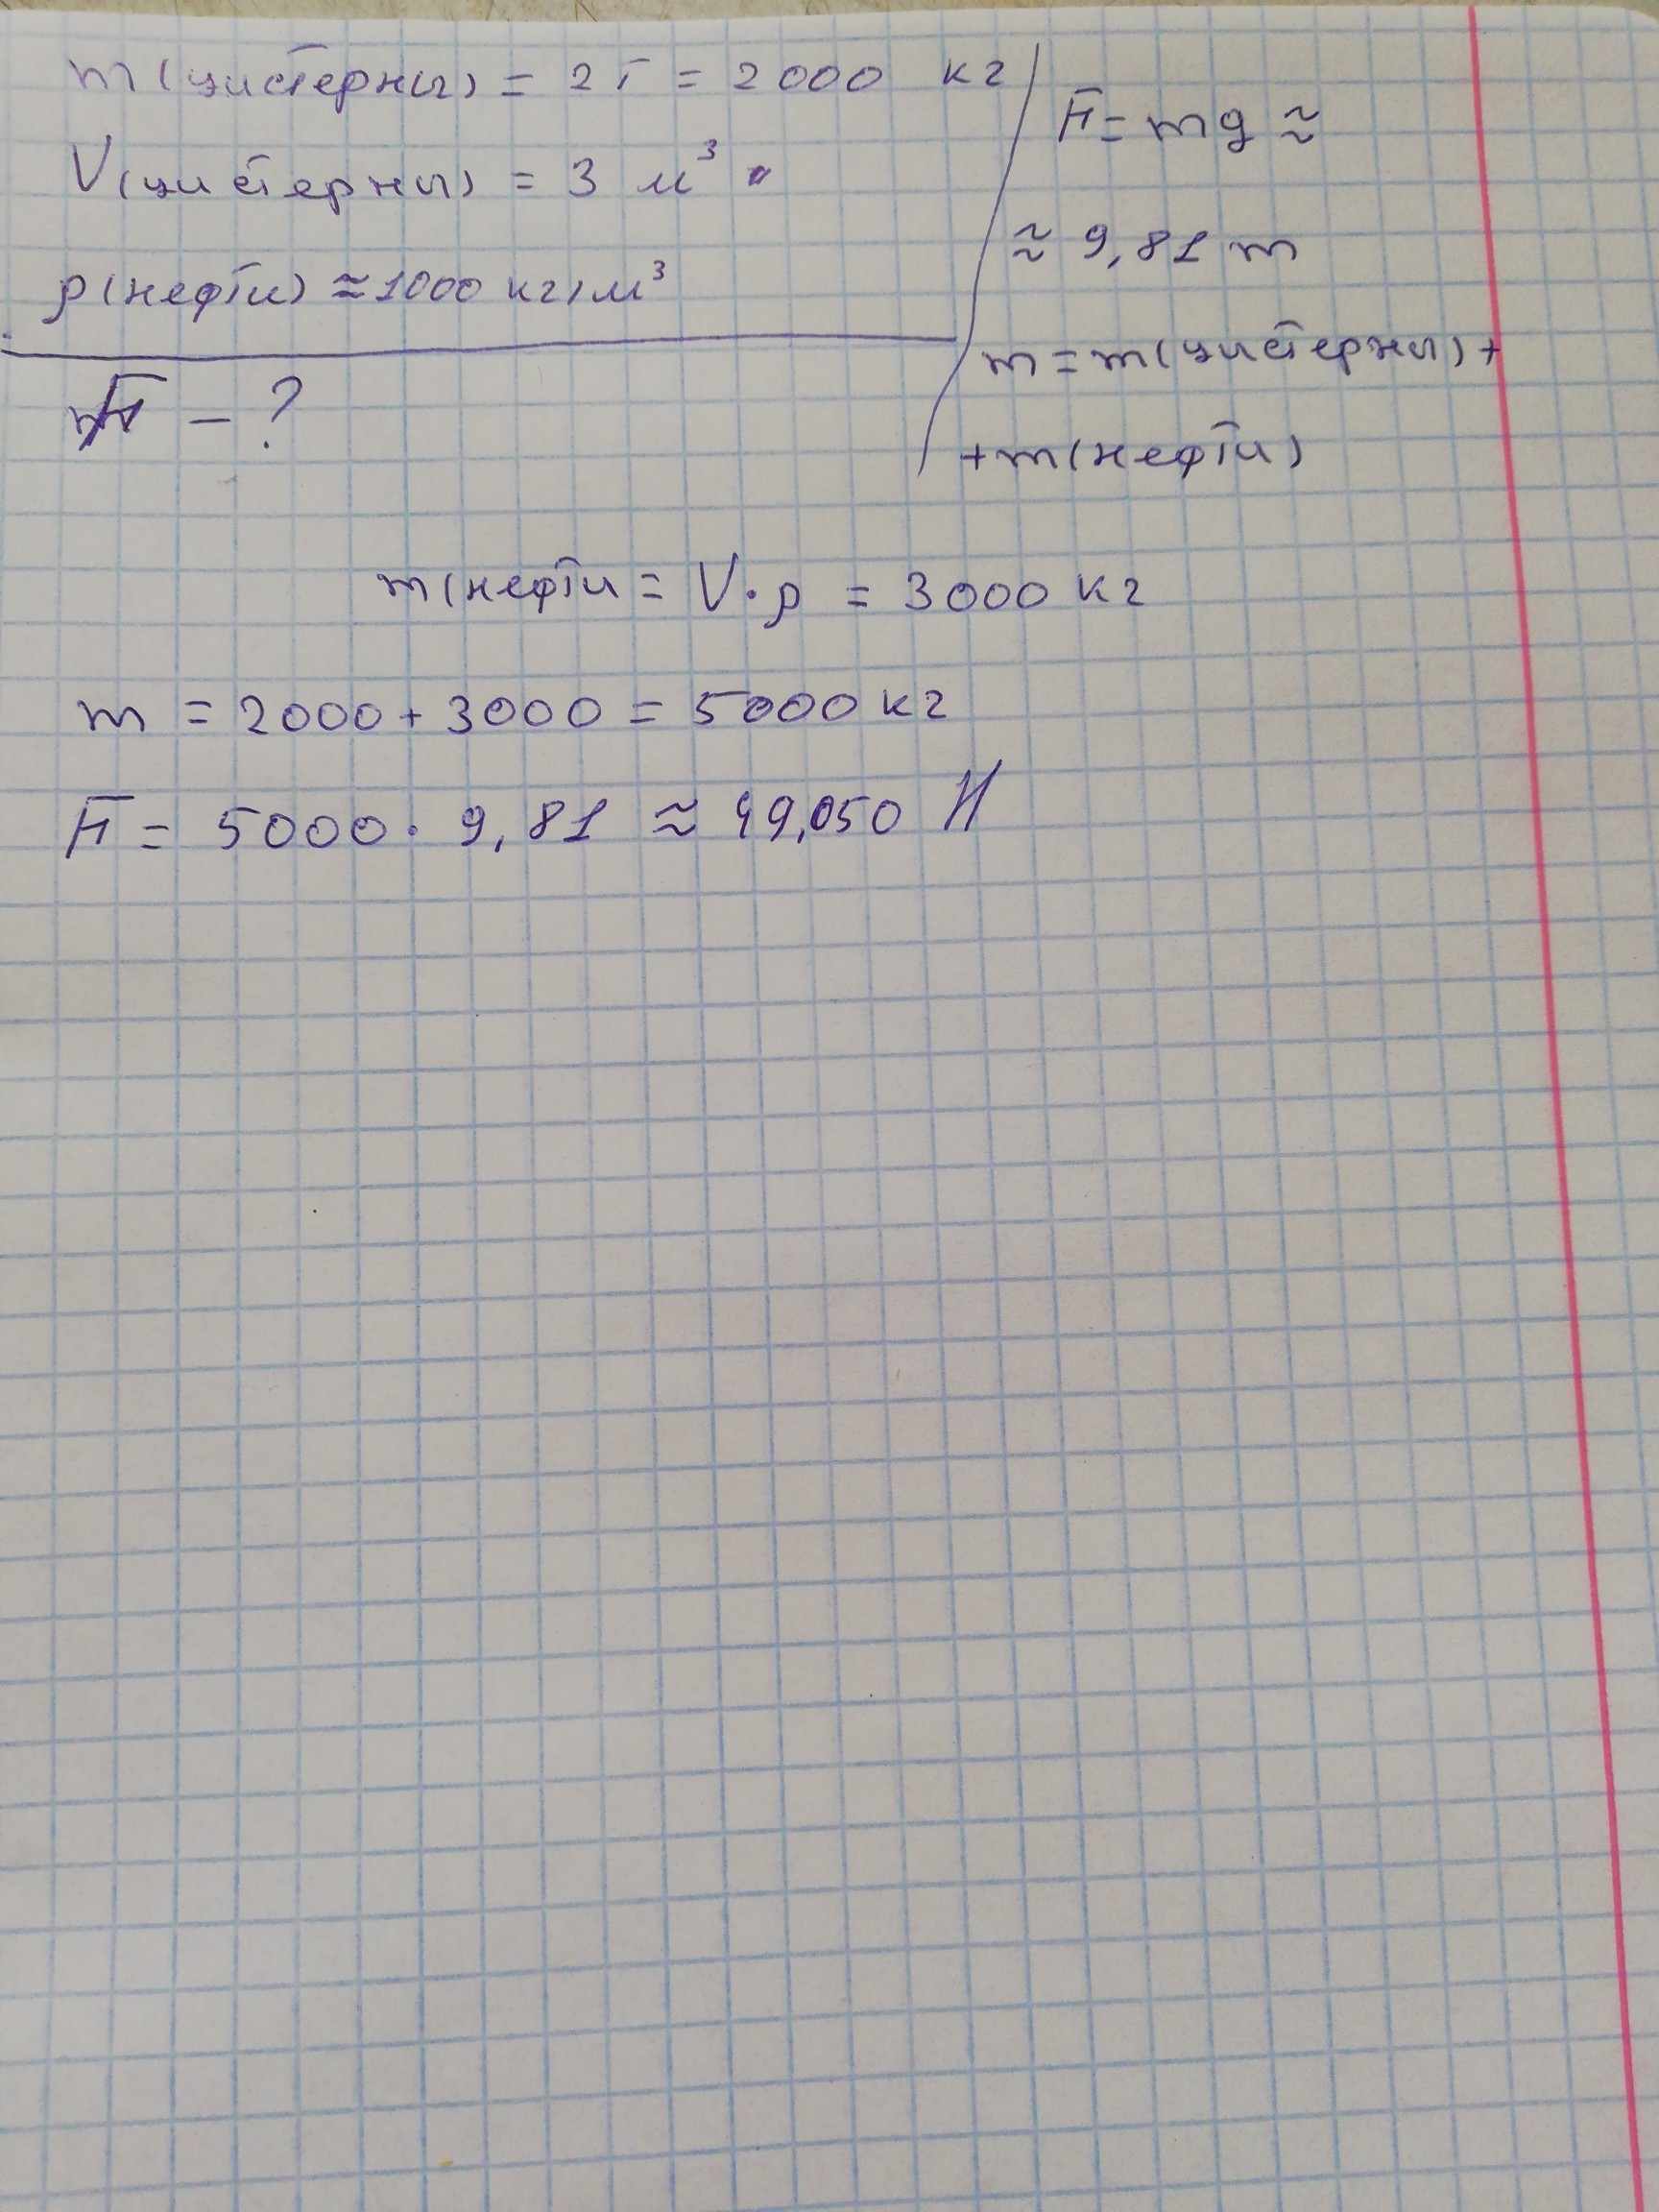 m(цистерны) = 2т = 2000 кг
V(цистерны) = 3 м³
ρ(нефти) ≈ 1000 кг/м³
F - ?
F = mg ≈
≈ 9,81 m
m = m(цистерны) +
+ m(нефти)
m(нефти = V · ρ = 3000 кг
m = 2000 + 3000 = 5000 кг
F = 5000 · 9,81 ≈ 49,050 Н